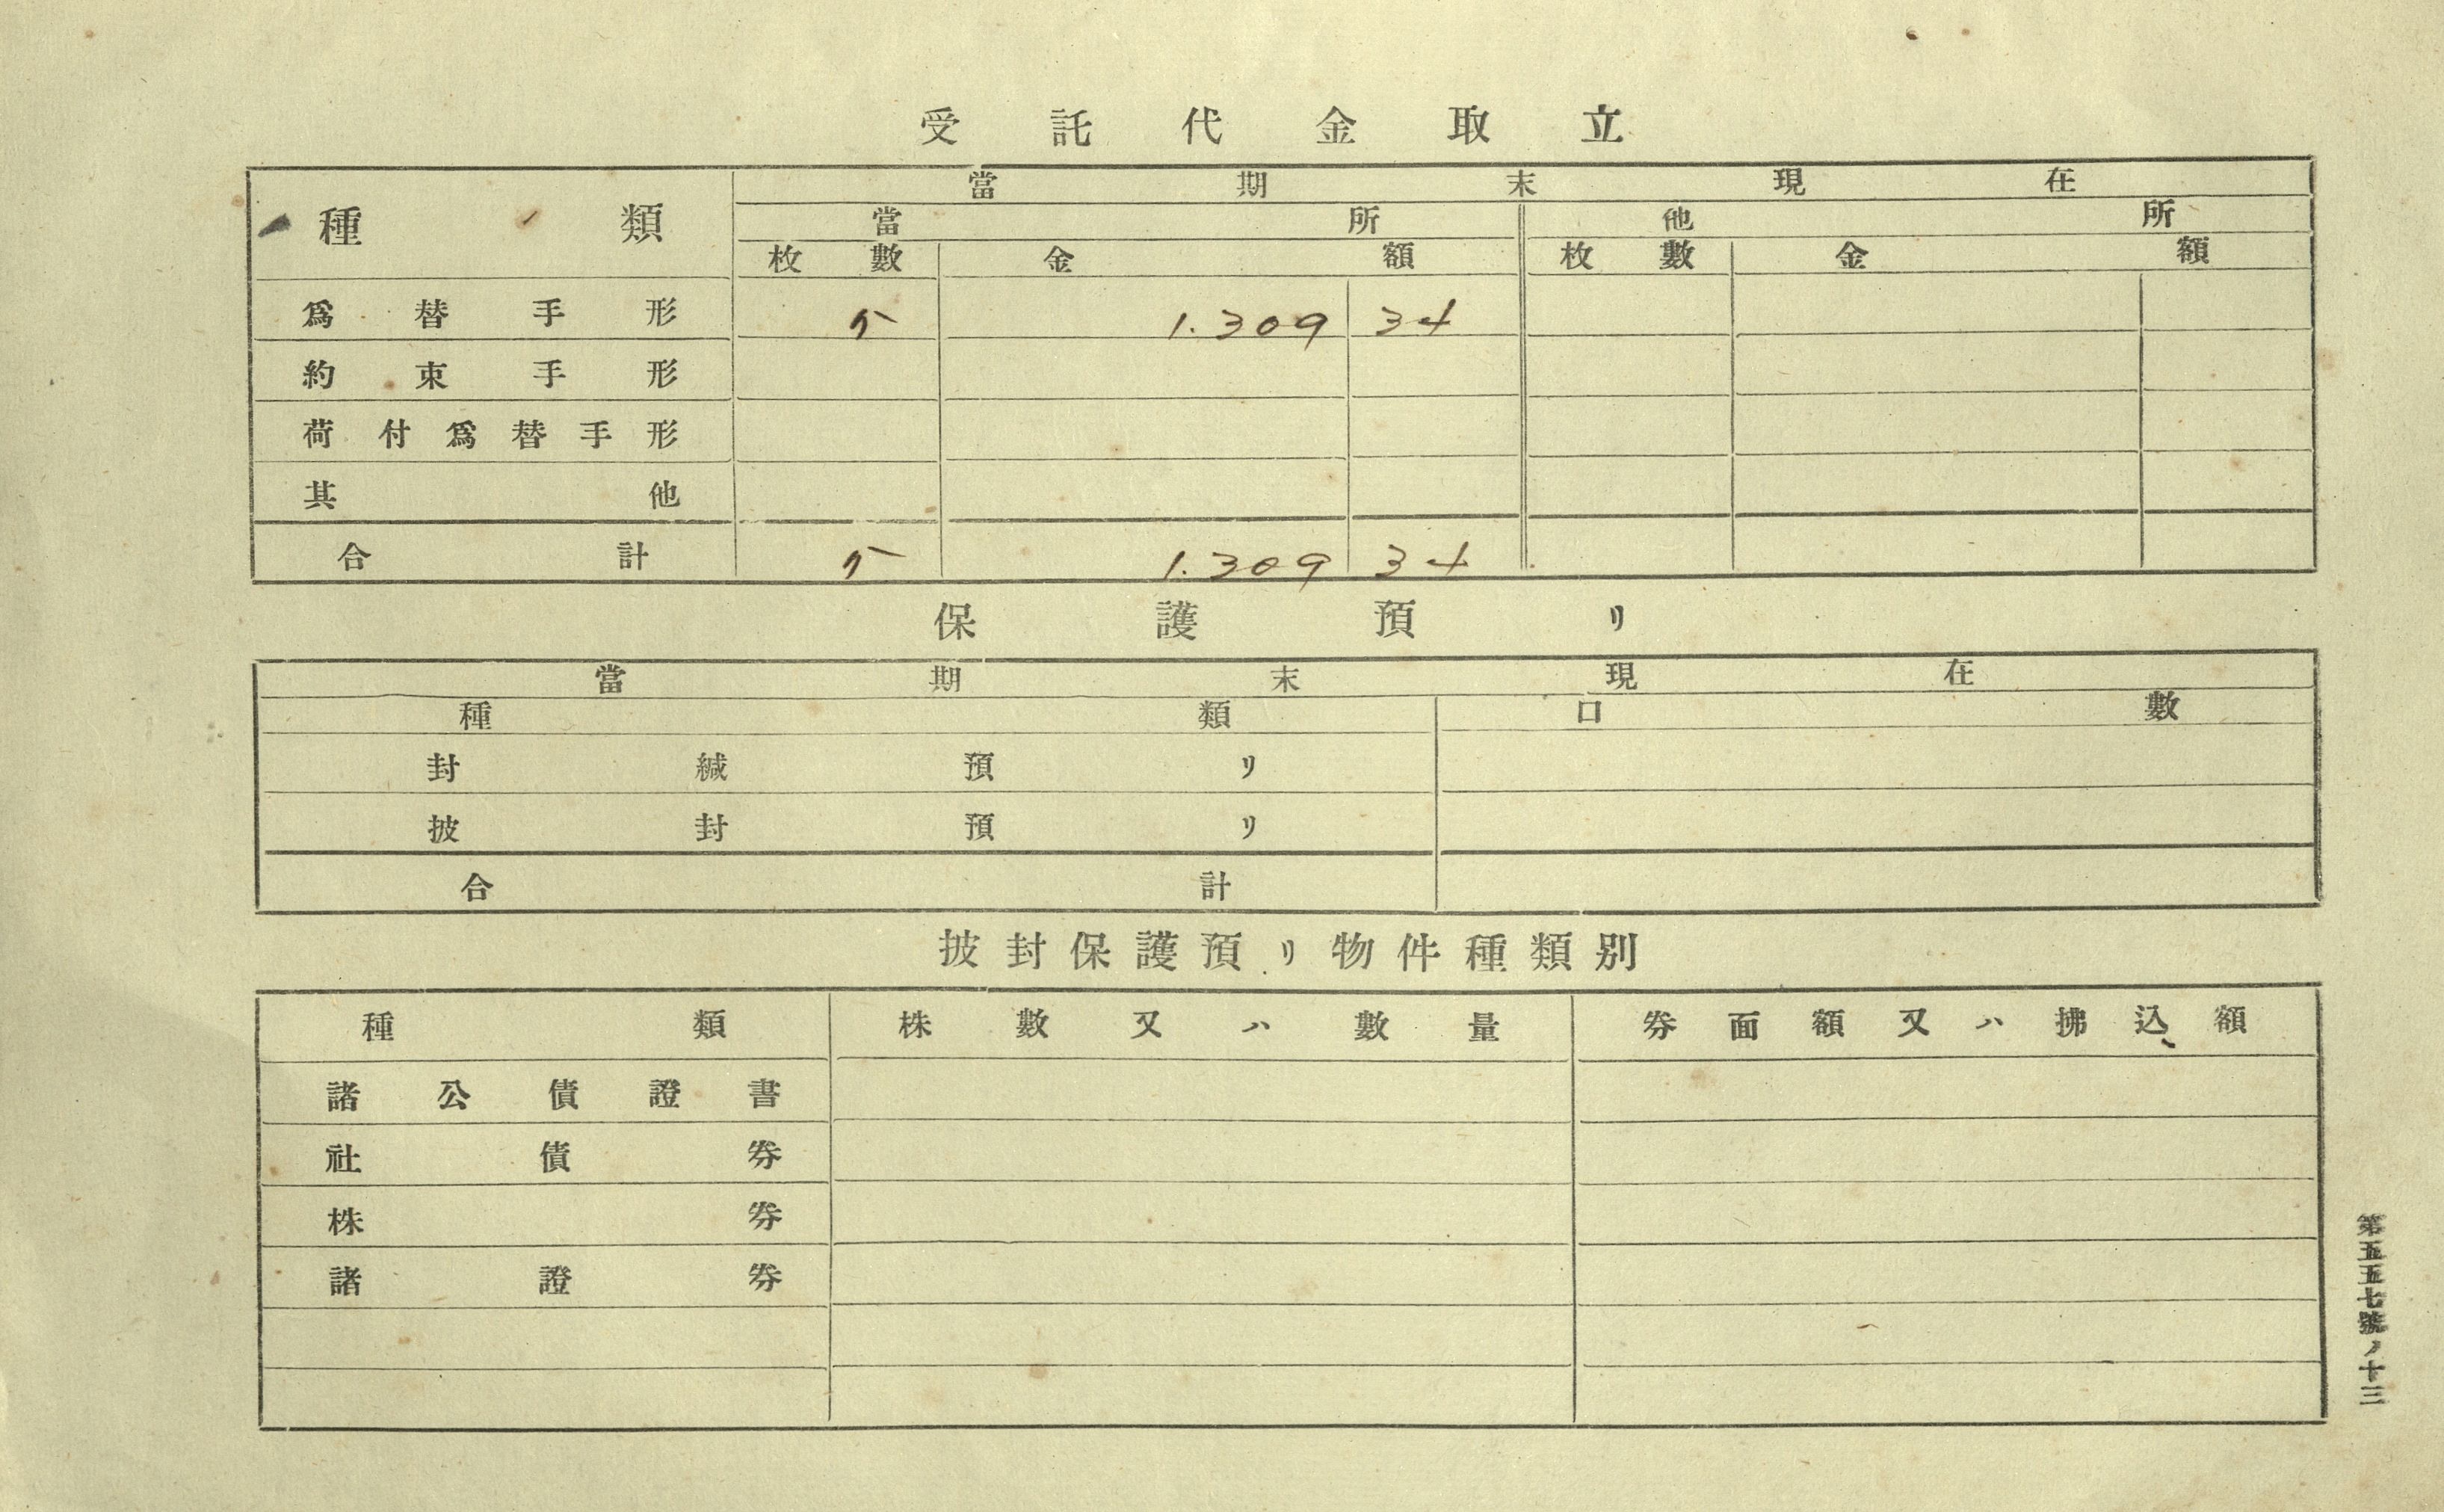 受託代金取立
種類 當期末現在
當所 他所
枚數 金額 枚數 金額
爲替手形 5 1.309 34
約束手形
荷付爲替手形
其他
合計 5 1.309 34
保護預リ
當期末現在
種類 口數
封緘預リ
披封預リ
合計
披封保護預リ物件種類別
種類 株數又ハ數量 券面額又ハ拂込額
諸公債證書
社債券
株券
諸證券
第五五七號ノ十三